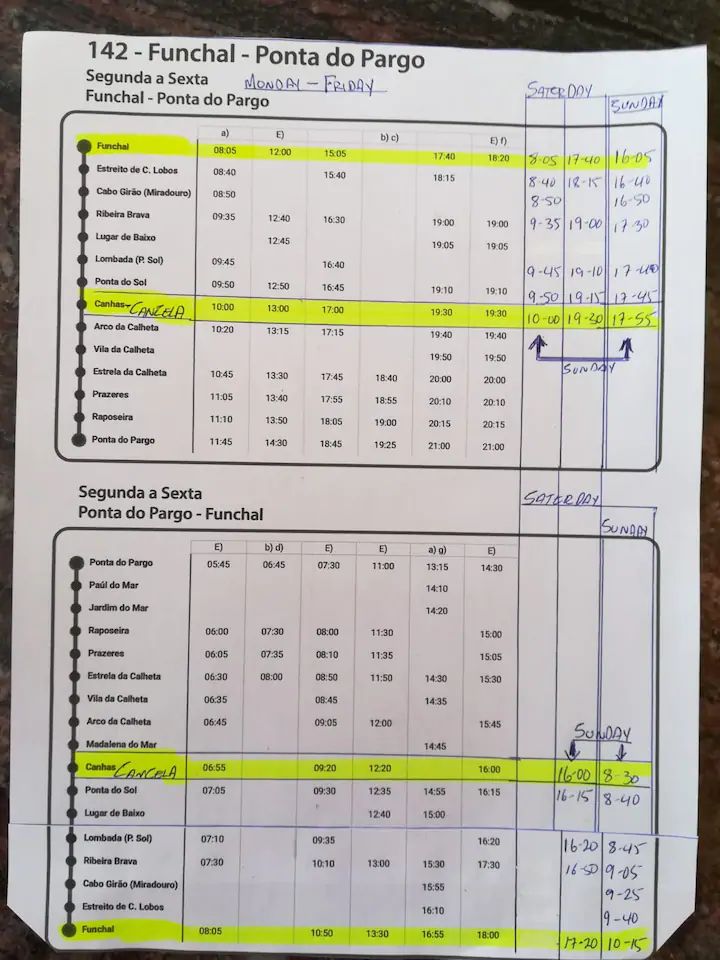 142 - Funchal - Ponta do Pargo
Segunda a Sexta MONDAY - FRIDAY
Funchal - Ponta do Pargo
SATERDAY
SUNDAY
a) E) b) c) E) f)
Funchal 08:05 12:00 15:05 17:40 18:20 8-05 17-40 16-05
Estreito de C. Lobos 08:40 15:40 18:15 8-40 18-15 16-40
Cabo Girão (Miradouro) 08:50 8-50 16-50
Ribeira Brava 09:35 12:40 16:30 19:00 19:00 9-35 19-00 17-30
Lugar de Baixo 12:45 19:05 19:05
Lombada (P. Sol) 09:45 16:40 9-45 19-10 17-40
Ponta do Sol 09:50 12:50 16:45 19:10 19:10 9-50 19-15 17-45
Canhas-CANCELA 10:00 13:00 17:00 19:30 19:30 10-00 19-30 17-55
Arco da Calheta 10:20 13:15 17:15 19:40 19:40
Vila da Calheta 19:50 19:50
SUNDAY
Estrela da Calheta 10:45 13:30 17:45 18:40 20:00 20:00
Prazeres 11:05 13:40 17:55 18:55 20:10 20:10
Raposeira 11:10 13:50 18:05 19:00 20:15 20:15
Ponta do Pargo 11:45 14:30 18:45 19:25 21:00 21:00
Segunda a Sexta
Ponta do Pargo - Funchal
SATERDAY
SUNDAY
E) b) d) E) E) a) g) E)
Ponta do Pargo 05:45 06:45 07:30 11:00 13:15 14:30
Paúl do Mar 14:10
Jardim do Mar 14:20
Raposeira 06:00 07:30 08:00 11:30 15:00
Prazeres 06:05 07:35 08:10 11:35 15:05
Estrela da Calheta 06:30 08:00 08:50 11:50 14:30 15:30
Vila da Calheta 06:35 08:45 14:35
Arco da Calheta 06:45 09:05 12:00 15:45
SUNDAY
Madalena do Mar 14:45
Canhas CANCELA 06:55 09:20 12:20 16:00 16-00 8-30
Ponta do Sol 07:05 09:30 12:35 14:55 16:15 16-15 8-40
Lugar de Baixo 12:40 15:00
Lombada (P. Sol) 07:10 09:35 16:20 16-20 8-45
Ribeira Brava 07:30 10:10 13:00 15:30 17:30 16-50 9-05
Cabo Girão (Miradouro) 15:55 9-25
Estreito de C. Lobos 16:10 9-40
Funchal 08:05 10:50 13:30 16:55 18:00 17-20 10-15